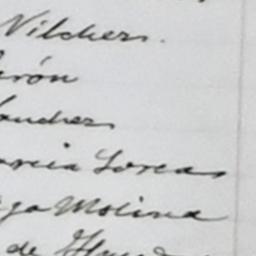 Vilches.
erón
Sanches
arcia Lorca
ga Molina
de